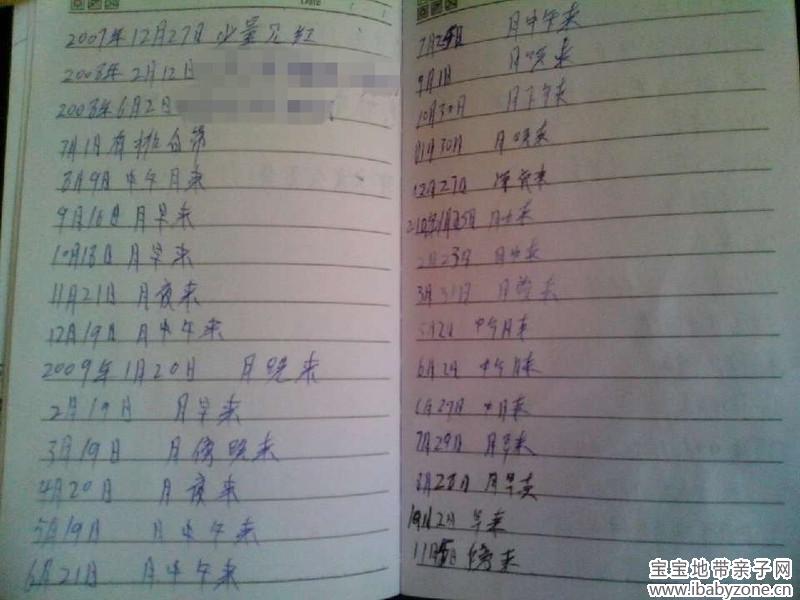 2007年12月27日 少量见红
2008年2月12日
2008年6月2日
7月1日有排白带
8月9日中午月来
9月16日月早来
10月18日月早来
11月21日月夜来
12月19日月中午来
2009年1月20日 月晚来
2月19日 月早来
3月19日 月傍晚来
4月20日 月夜来
5月19日 月中午来
6月21日 月中午来
月中午来
9月1日 月晚来
10月30日 月下午来
11月30日 月晚来
12月27日 来
月来
2月23日 月来
3月31日 月来
5月2日 中午月来
6月2日 中午月来
6月29日 月来
7月29日 月早来
8月28日 月早来
10月2日 早来
11月 傍来
宝宝地带亲子网
www.ibabyzone.cn